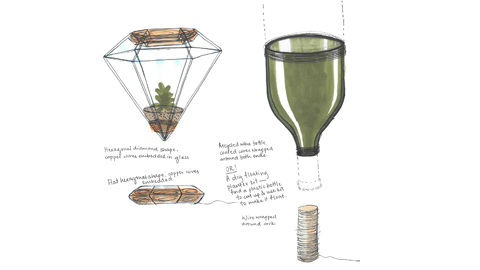 Hexagonal diamond shape,
copper wires embedded in glass
Flat hexagonal shape, copper wires
embedded
Recycled wine bottle
coated wires wrapped
around both ends.
OR!
A diy floating
planter kit —
find a plastic bottle
to cut up & use kit
to make it float.
Wire wrapped
around cork